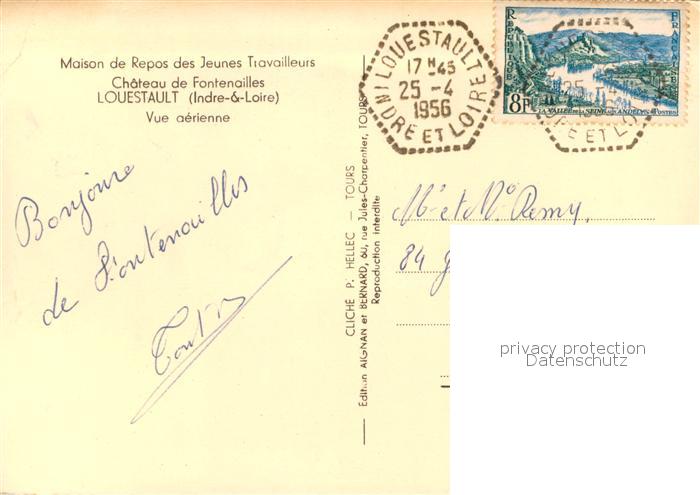 Maison de Repos des Jeunes Travailleurs
Château de Fontenailles
LOUESTAULT (Indre-&-Loire)
Vue aérienne
Bonjour
de Fontenailles
CLICHÉ P. HELLEC — TOURS
Edition AIGNAN et BERNARD, 60, rue Jules-Charpentier, TOURS
Reproduction interdite
LOUESTAULT
17H45
25-4
1956
INDRE ET LOIRE
REPUBLIQUE FRANÇAISE
8F
LA VALLÉE DE LA SEINE AUX ANDELYS
POSTES
25-4
RE ET LOI
Mr et Me Remy.
84
privacy protection
Oldthing / Datenschutz